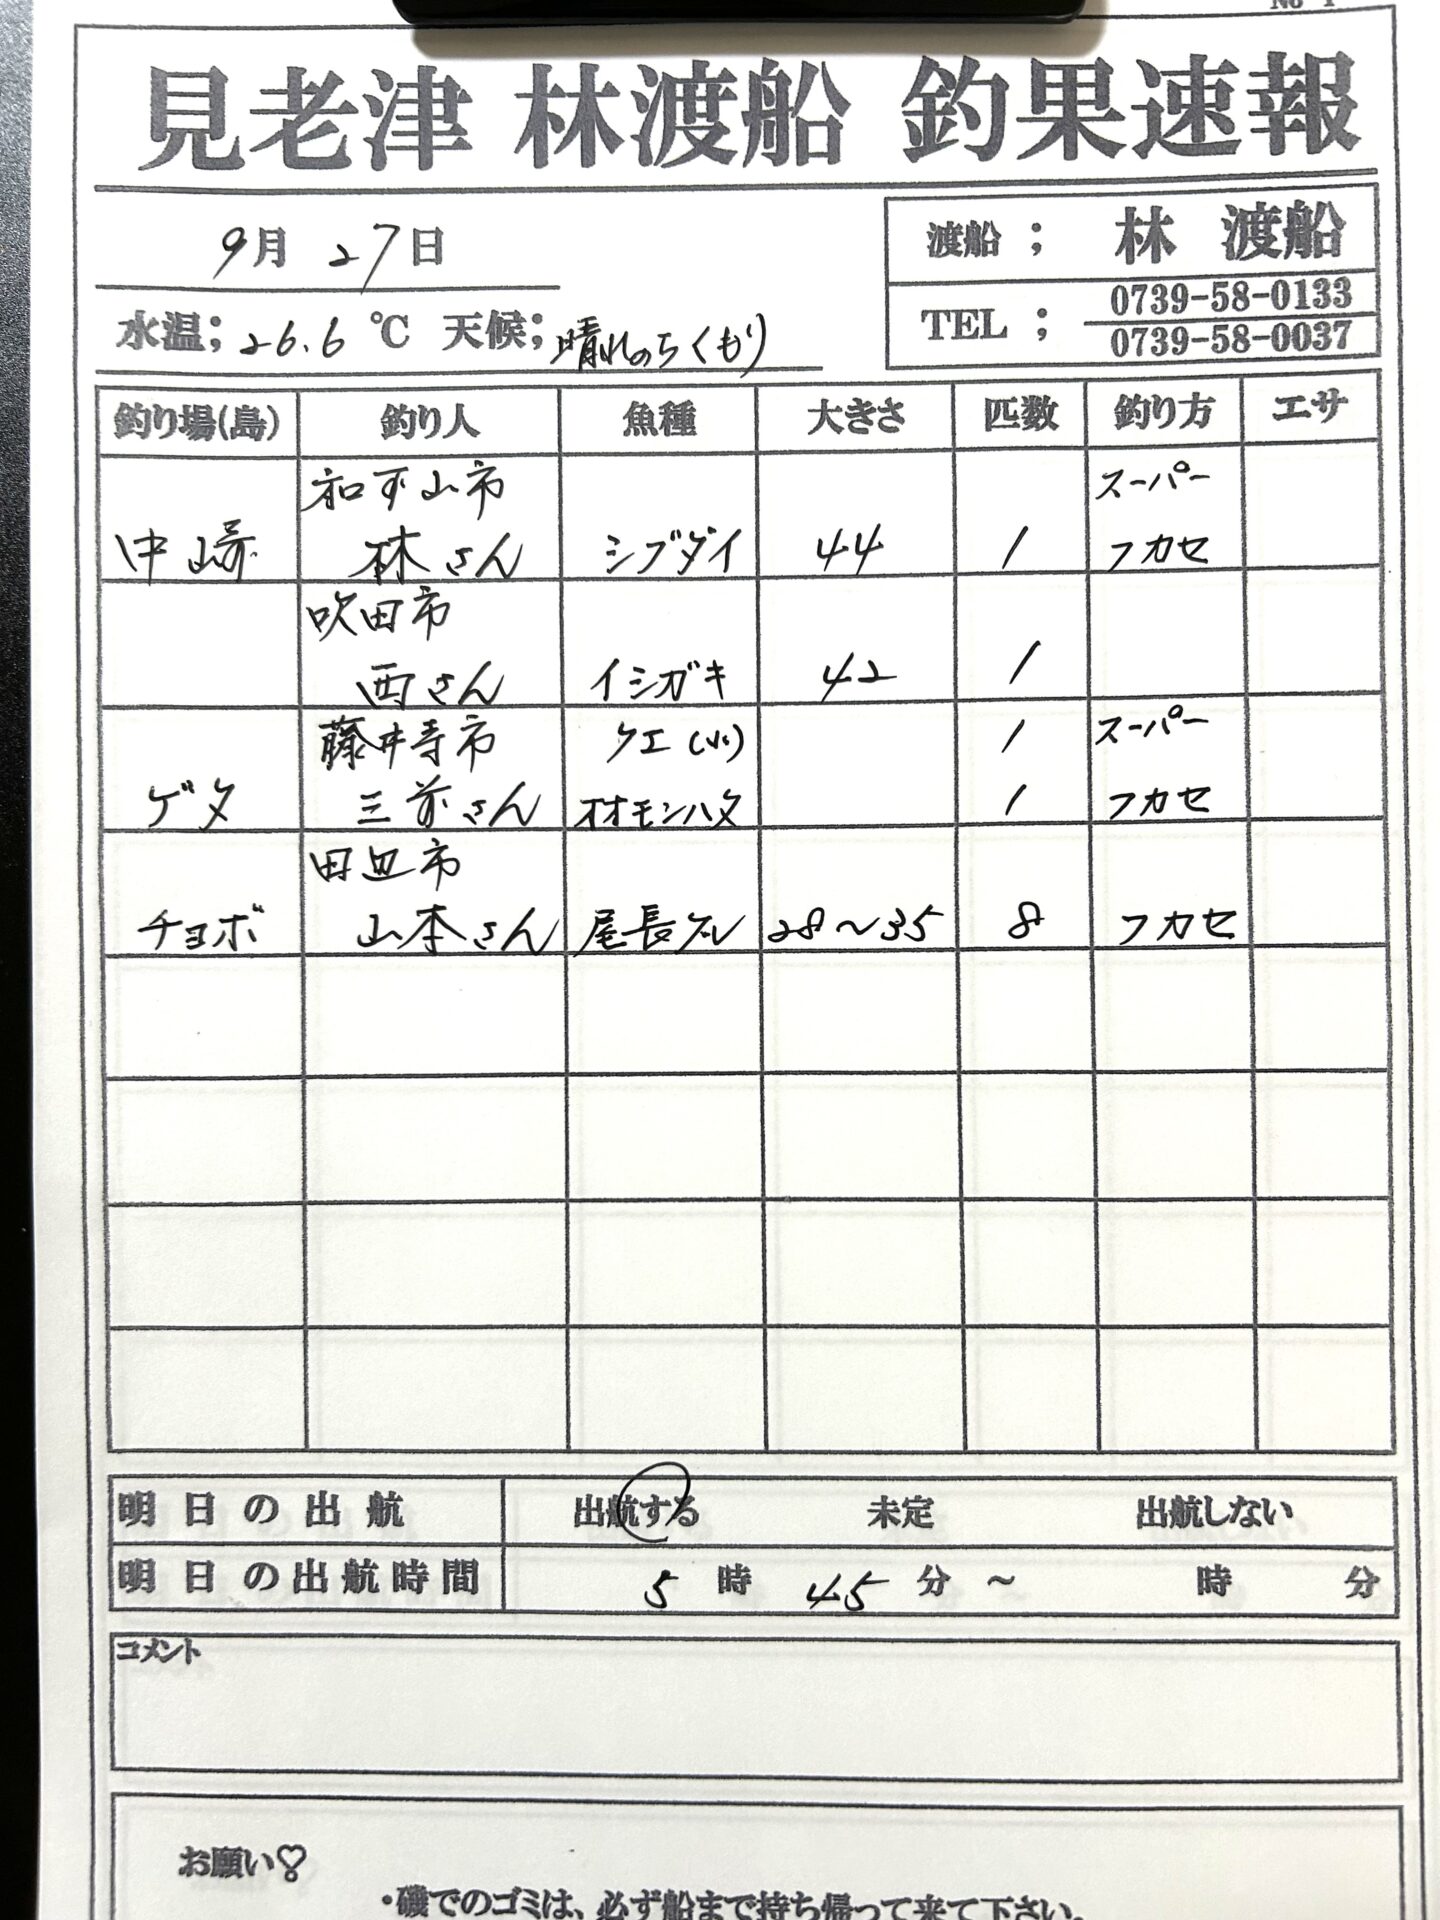 見老津 林渡船 釣果速報
9月 27日
渡船 ; 林 渡船
水温; 26.6 ℃ 天候; 晴れのちくもり
TEL ; 0739-58-0133
0739-58-0037
釣り場(島) 釣り人 魚種 大きさ 匹数 釣り方 エサ
和歌山市 スーパー
中崎 林さん シブダイ 44 1 フカセ
吹田市
西さん イシガキ 42 1
藤井寺市 クエ(小) 1 スーパー
ゲタ 三前さん オオモンハタ 1 フカセ
田辺市
チョボ 山本さん 尾長グレ 28~35 8 フカセ
明日の出航 出航する 未定 出航しない
明日の出航時間 5 時 45 分 ~ 時 分
コメント
お願い♡
・磯でのゴミは、必ず船まで持ち帰って来て下さい。